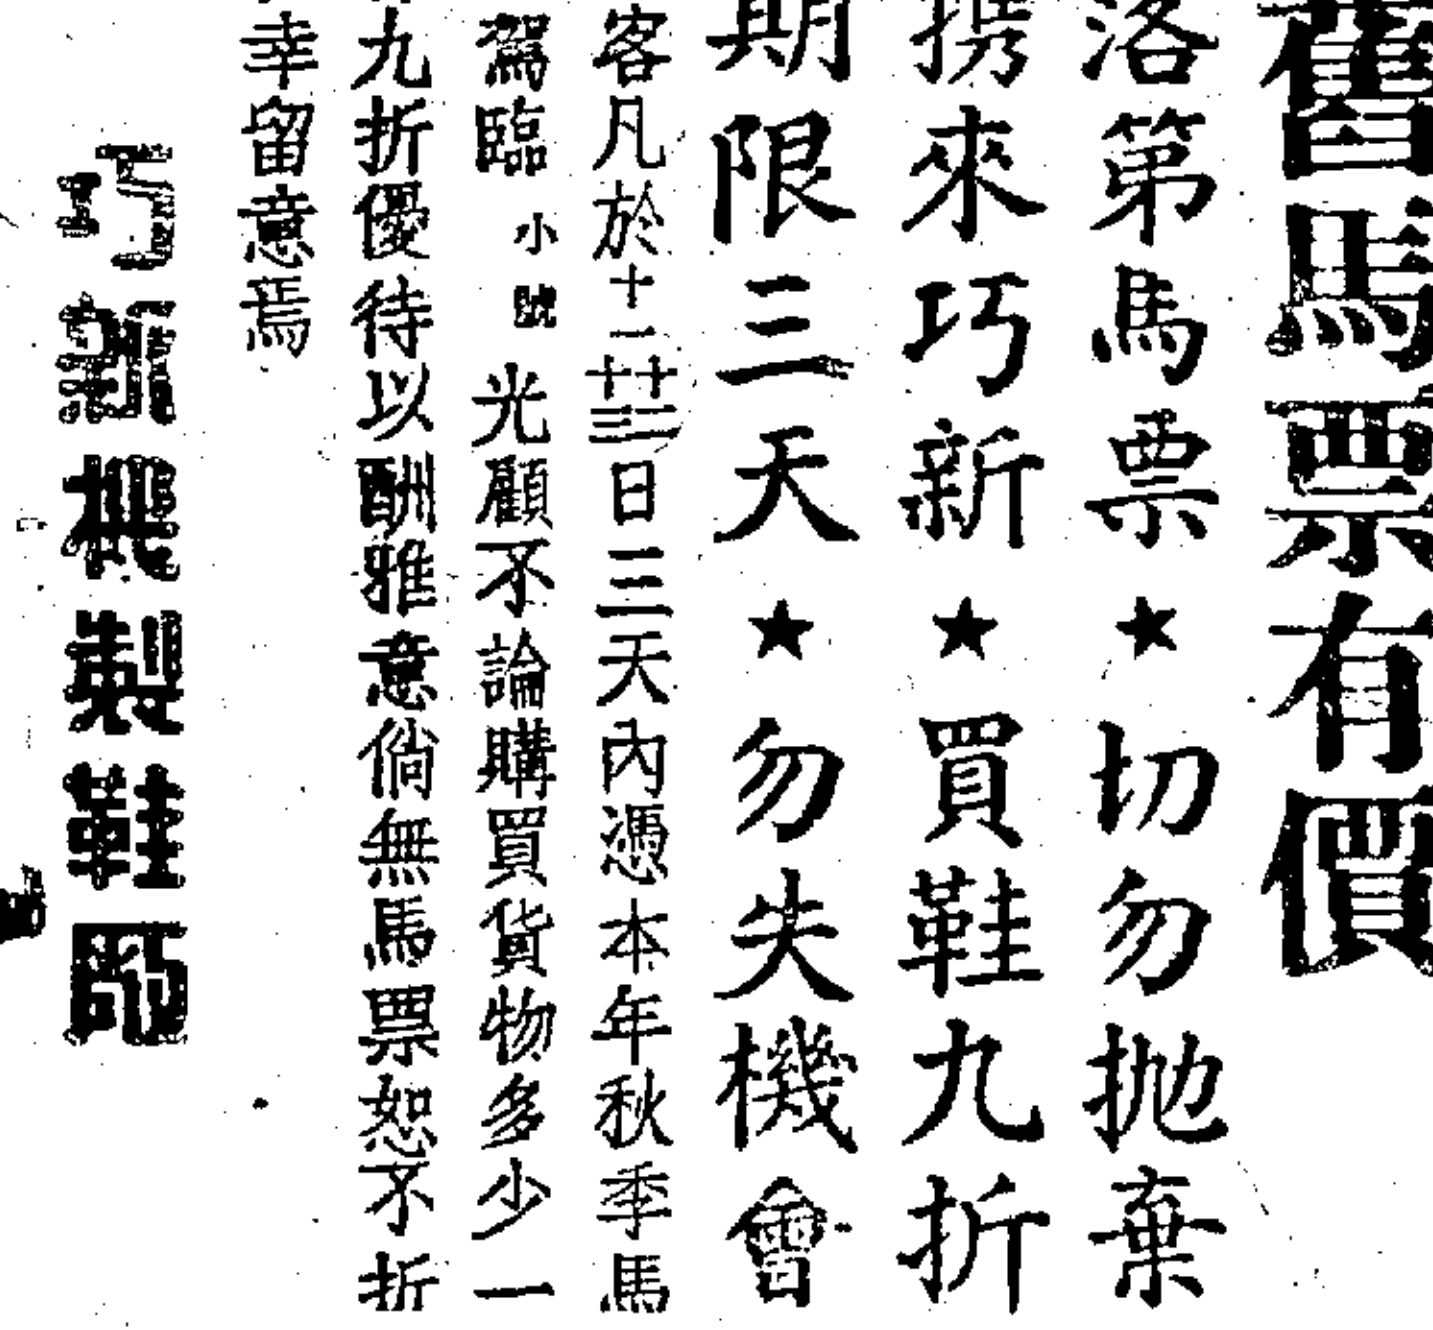 舊馬票有價
洛第馬票★切勿拋棄
携來巧新★買鞋九折
期限三天★勿失機會
客凡於十一廿二十三日三天內憑本年秋季馬
駕臨小號光顧不論購買貨物多少一
九折優待以酬雅意倘無馬票恕不折
幸留意焉
巧新機製鞋